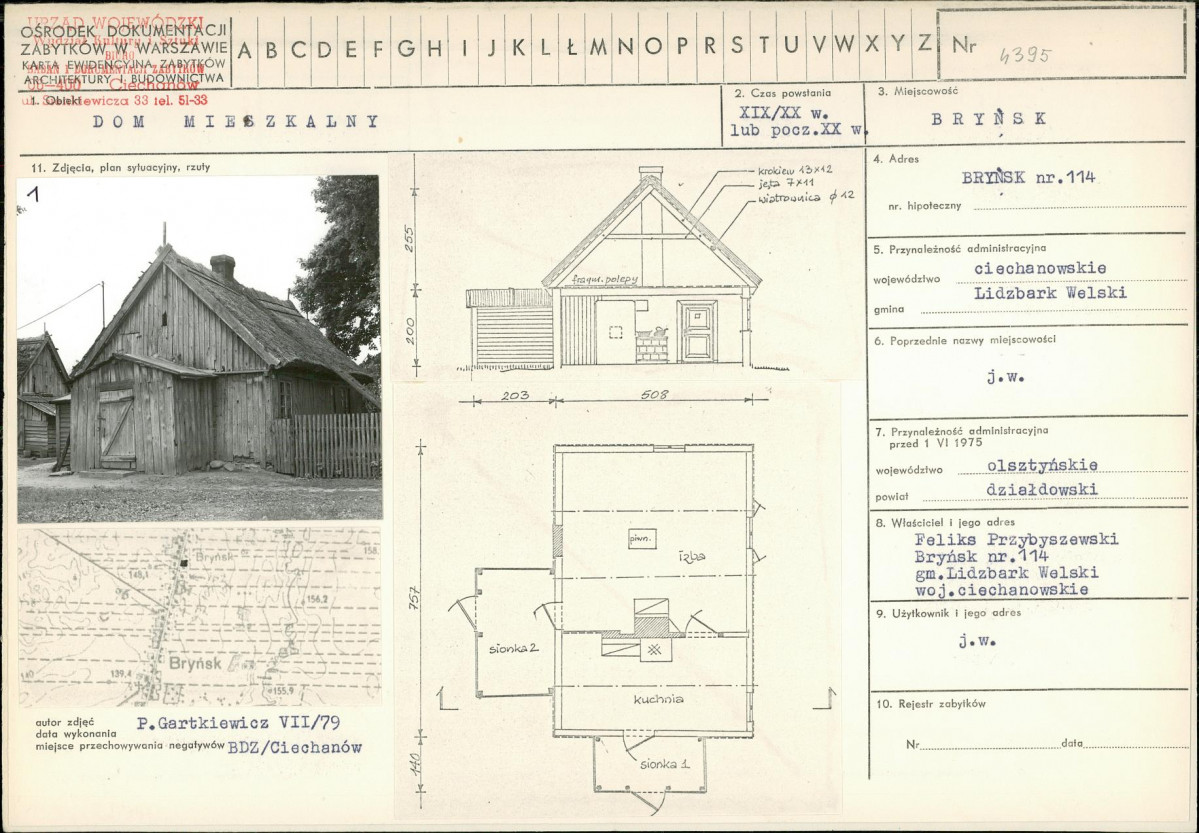 URZĄD WOJEWÓDZKI
Wydział Kultury i Sztuki
BIURO
BADAŃ I DOKUMENTACJI ZABYTKÓW
06-400 Ciechanów
ul. Sienkiewicza 33 tel. 51-33
OŚRODEK DOKUMENTACJI
ZABYTKÓW W WARSZAWIE
KARTA EWIDENCYJNA ZABYTKÓW
ARCHITEKTURY I BUDOWNICTWA
A B C D E F G H I J K L Ł M N O P R S T U V W X Y Z
Nr 4395
1. Obiekt
DOM MIESZKALNY
2. Czas powstania
XIX/XX w.
lub pocz.XX w.
3. Miejscowość
BRYŃSK
11. Zdjęcia, plan sytuacyjny, rzuty
1
krokiew 13x12
jętka 7x11
wiatrownica ϕ 12
fragm. polepy
255
200
203
508
757
140
piwn.
izba
sionka 2
kuchnia
sionka 1
Bryńsk
158,
148,1
156,2
Bryńsk
139,4
155,9
autor zdjęć
data wykonania
miejsce przechowywania negatywów
P.Gartkiewicz VII/79
BDZ/Ciechanów
4. Adres
BRYŃSK nr.114
nr. hipoteczny
5. Przynależność administracyjna
województwo ciechanowskie
gmina Lidzbark Welski
6. Poprzednie nazwy miejscowości
j.w.
7. Przynależność administracyjna
przed 1 VI 1975
województwo olsztyńskie
powiat działdowski
8. Właściciel i jego adres
Feliks Przybyszewski
Bryńsk nr.114
gm.Lidzbark Welski
woj.ciechanowskie
9. Użytkownik i jego adres
j.w.
10. Rejestr zabytków
Nr data